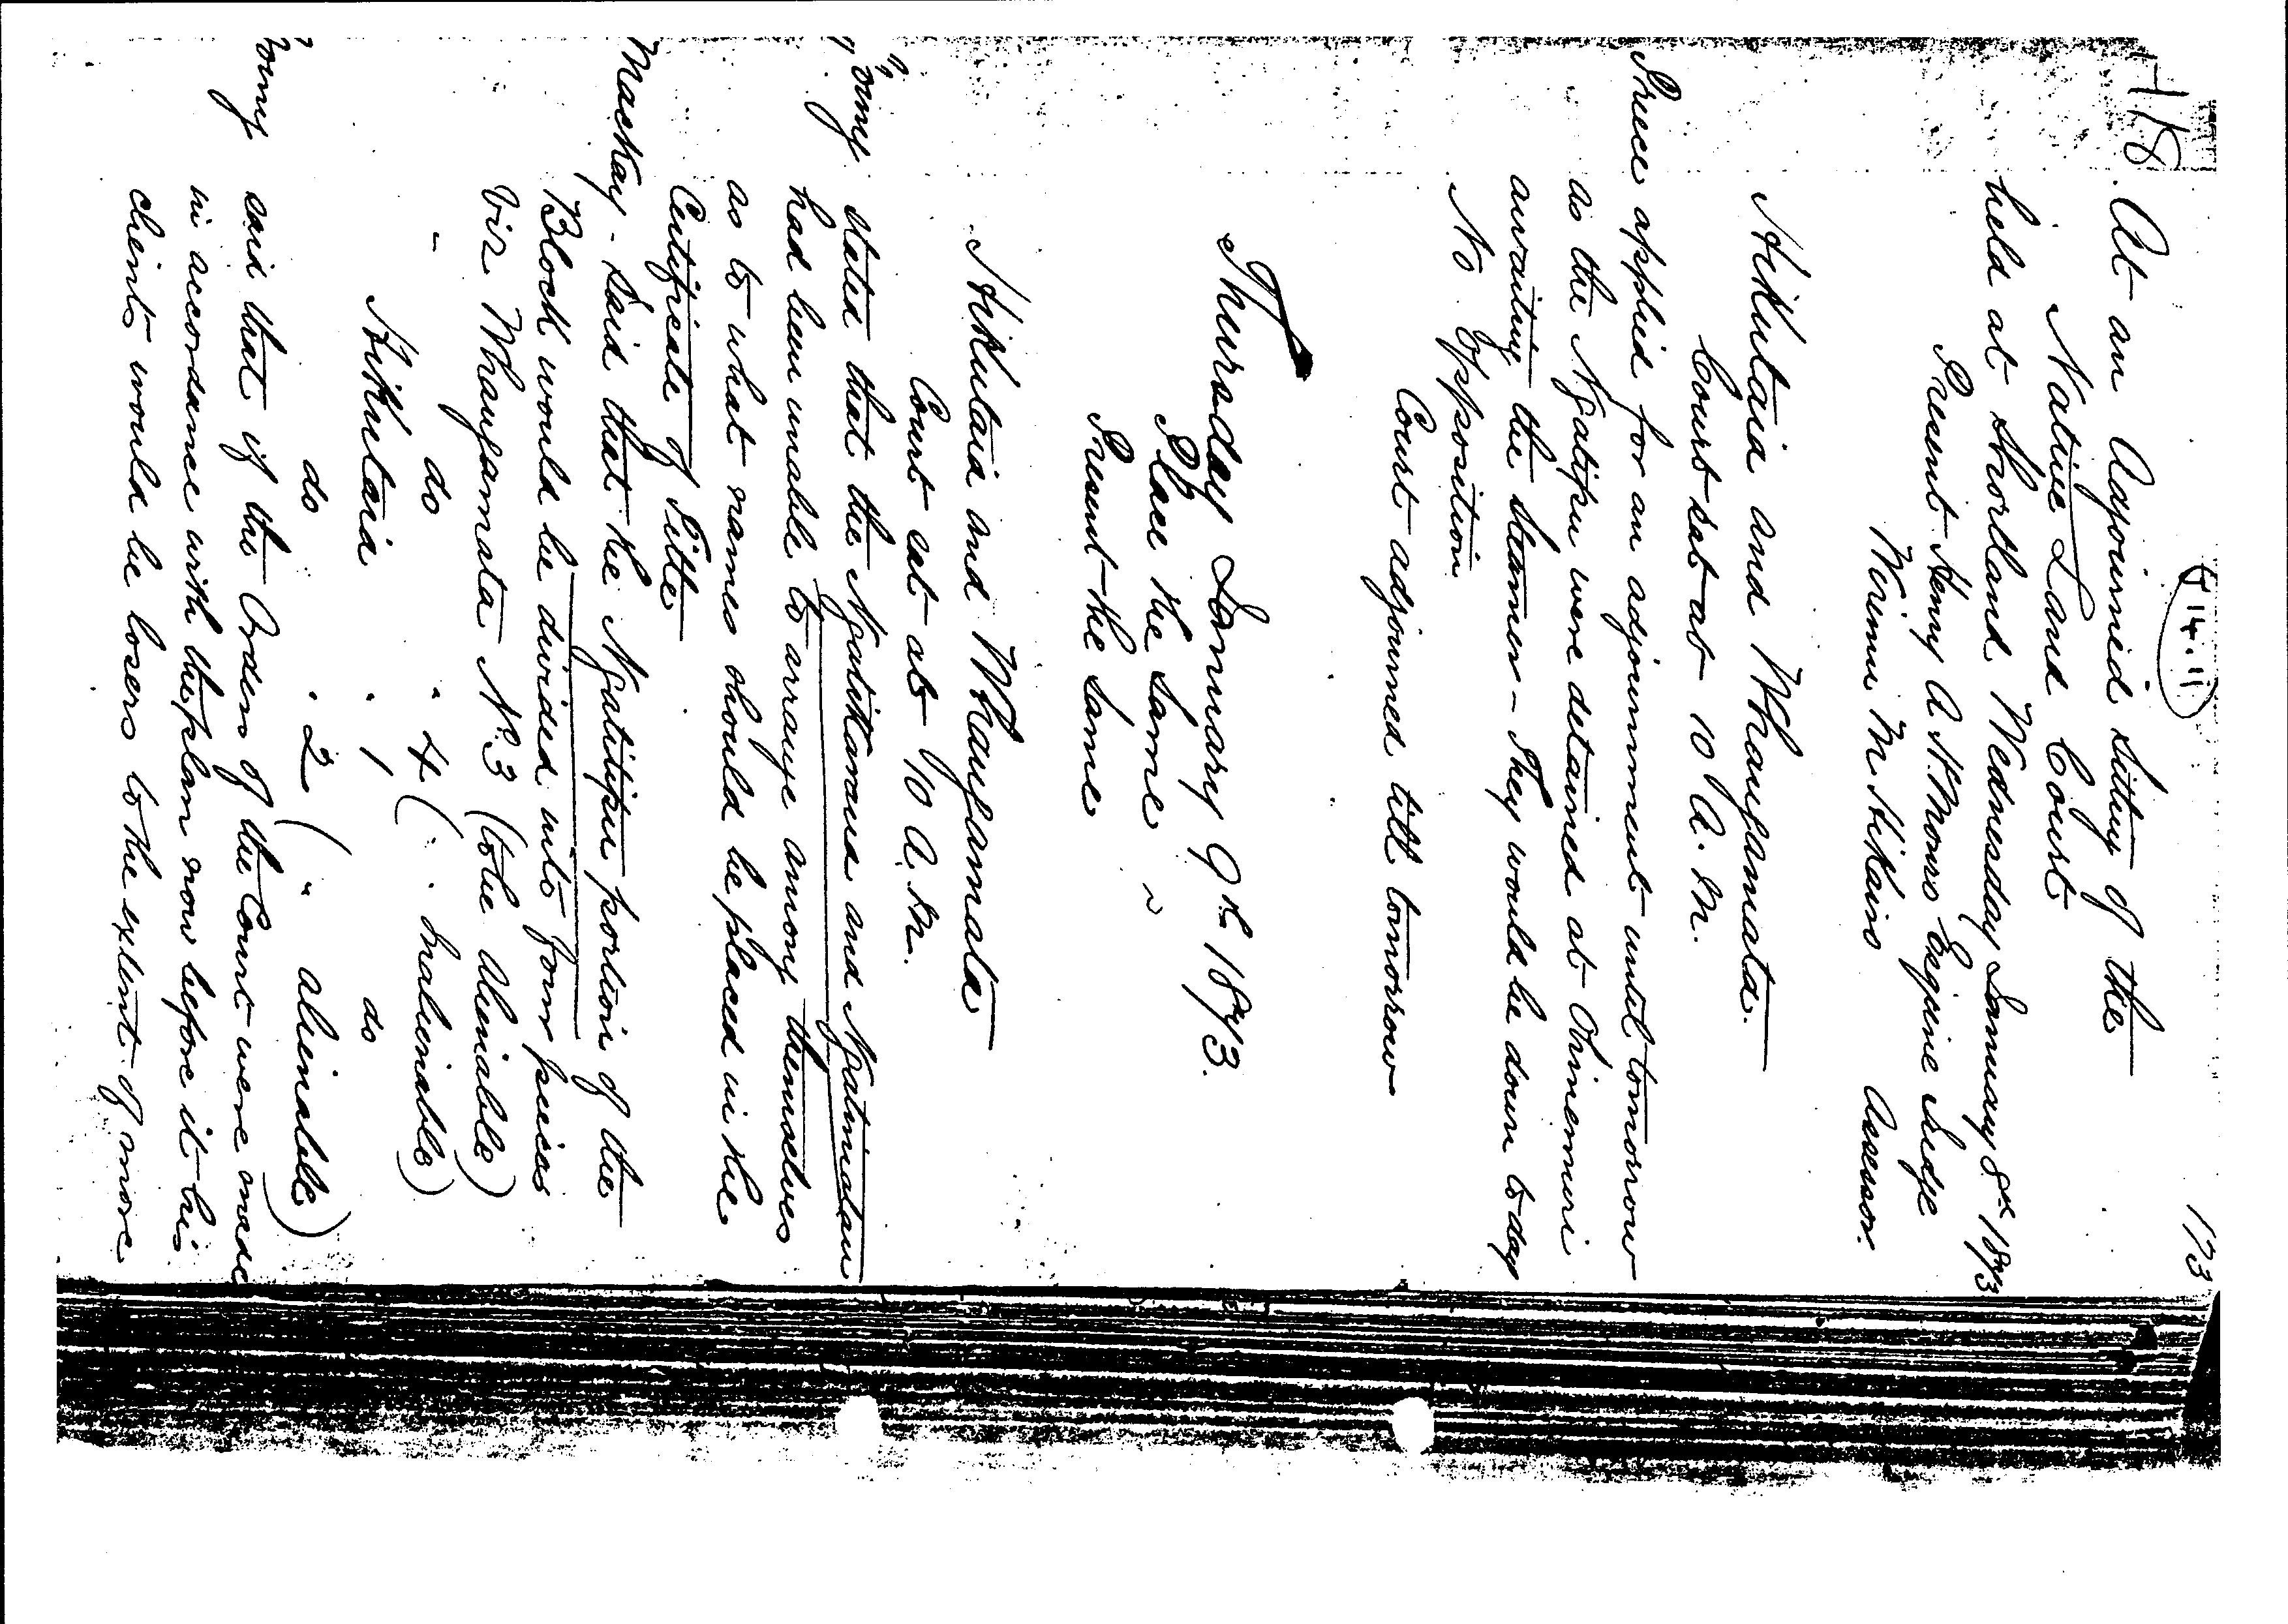 118
J 14.11
173
At an Adjourned Sitting of the
Native Land Court
held at Shortland Wednesday January 8th 1873
Present Henry A. H. Monro Esquire Judge
Wiremu M Hikairo Assessor.
Hikutaia and Whangamata.
Court sat at 10 A. M.
Preece applied for an adjournment until tomorrow
as the Ngatipu were detained at Ohinemuri
awaiting the steamer - They would be down today
No Opposition
Court adjourned till tomorrow
Thursday January 9th 1873.
Place the same
Present the same
Hikutaia and Whangamata
Court sat at 10 A. M.
stated that the Ngatikaraua and Ngatimatau
had been unable to arrange among themselves
as to what names should be placed in the
Certificate of Title
Mackay - said that the Ngatitipu portion of the
Block would be divided into four pieces
viz Whangamata No 3 (to be alienable)
" do " 4 ( " Inalienable)
Hikutaia " 1 do
do " 2 ( " alienable)
said that if the Orders of the Court were made
in accordance with the plan now before it his
clients would be losers to the extent of more